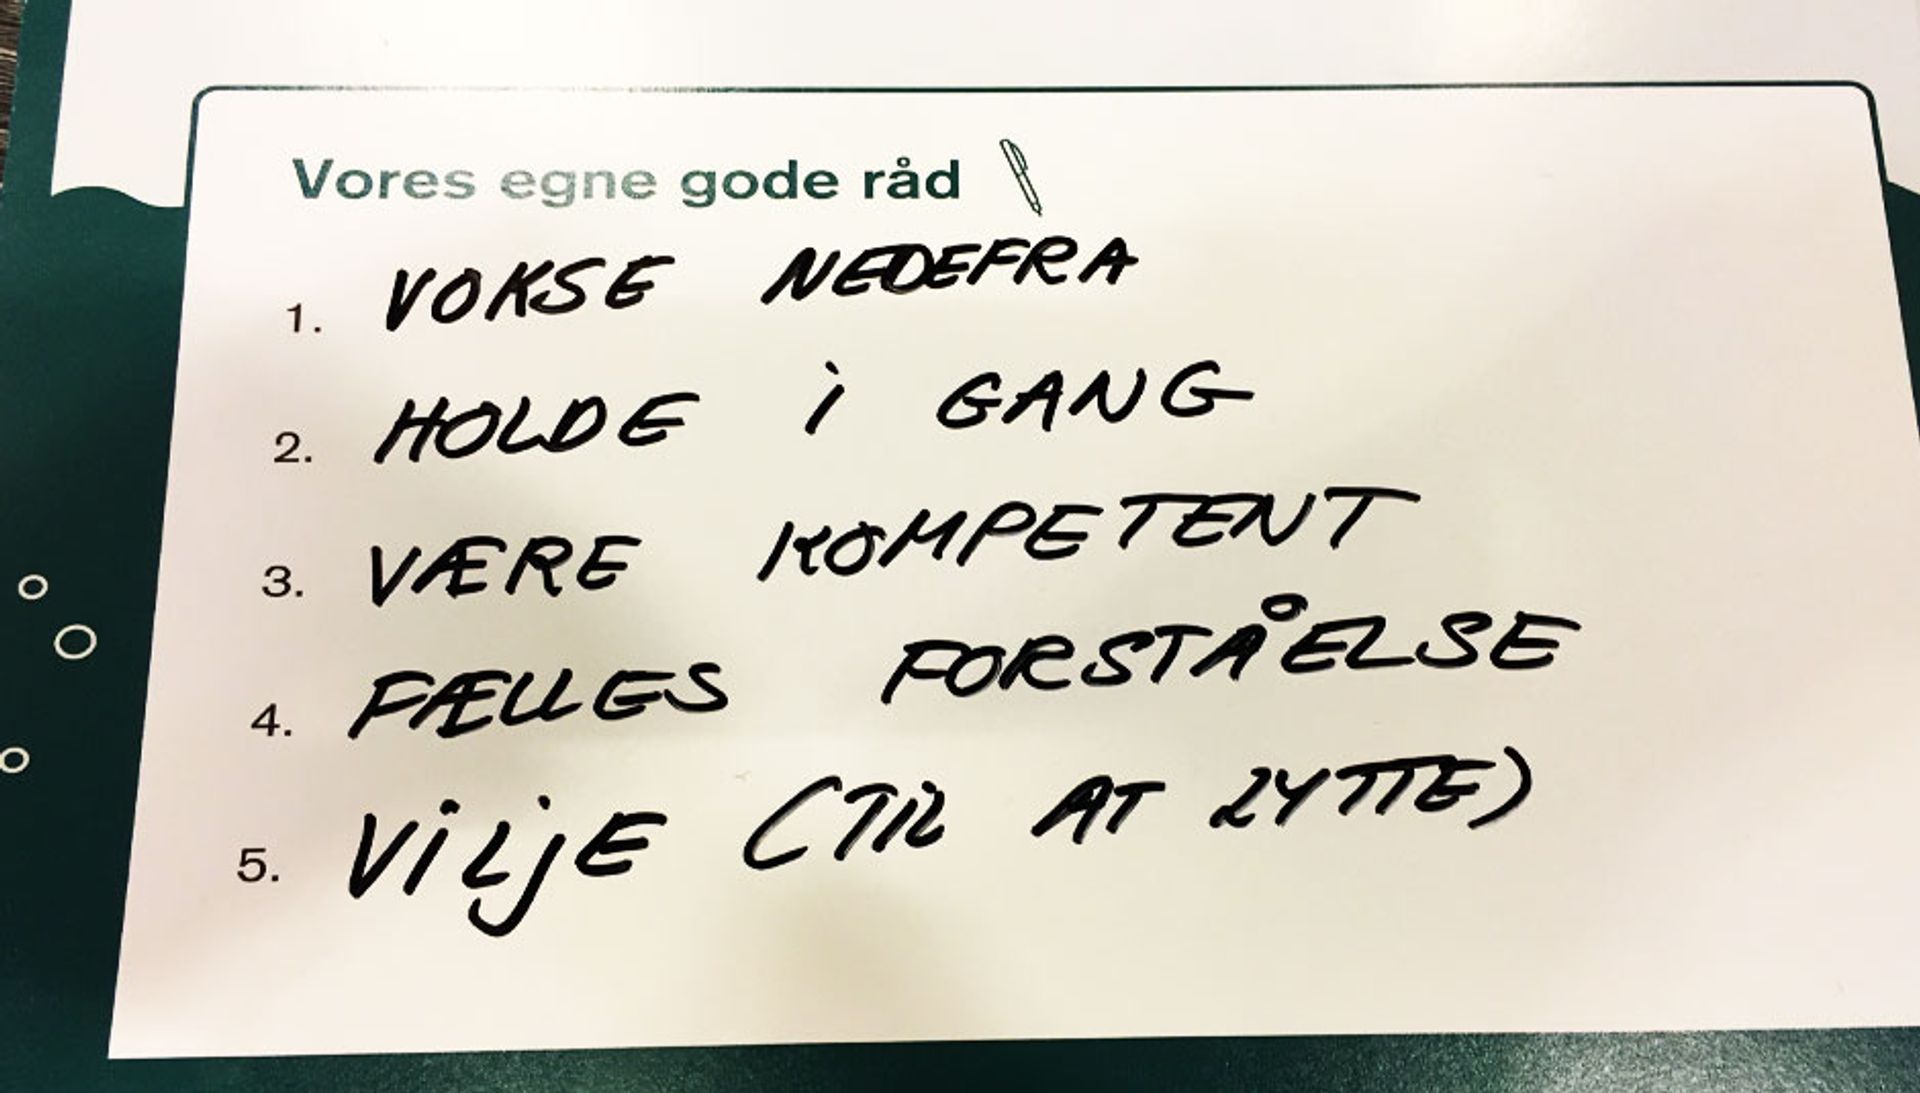 Vores egne gode råd
1. VOKSE NEDEFRA
2. HOLDE i GANG
3. VÆRE KOMPETENT
4. FÆLLES FORSTÅELSE
5. ViLjE (TIL AT LYTTE)